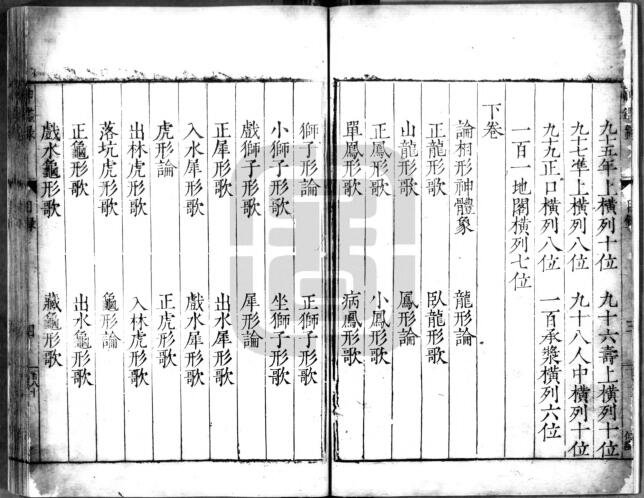 九十五年上橫列十位　九十六壽上橫列十位
九十七準上橫列八位　九十八人中橫列十位
九十九正口橫列八位　一百承漿橫列六位
一百一地閣橫列七位
下卷
論相形神體象　龍形論
正龍形歌　臥龍形歌
山龍形歌　鳳形論
正鳳形歌　小鳳形歌
單鳳形歌　病鳳形歌
獅子形論　正獅子形歌
小獅子形歌　坐獅子形歌
戲獅子形歌　犀形論
正犀形歌　出水犀形歌
入水犀形歌　戲水犀形歌
虎形論　正虎形歌
出林虎形歌　入林虎形歌
落坑虎形歌　龜形論
正龜形歌　出水龜形歌
戲水龜形歌　藏龜形歌